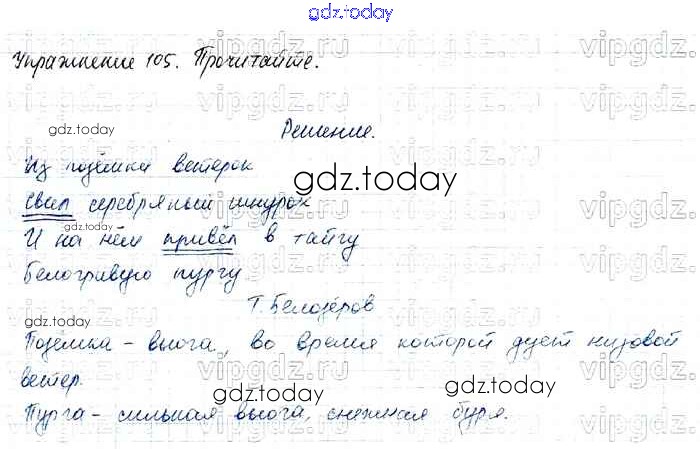 gdz.today
Упражнение 105. Прочитайте.
gdz.today
Решение.
Из позёмки ветерок
gdz.today
Свил серебряный шнурок
И на нём привёл в тайгу
gdz.today
Белогривую пургу.
Т. Белозёров
gdz.today
Позёмка - вьюга, во время которой дует низовой
ветер.
gdz.today
gdz.today
Пурга - сильная вьюга, снежная буря.
vipgdz.ru